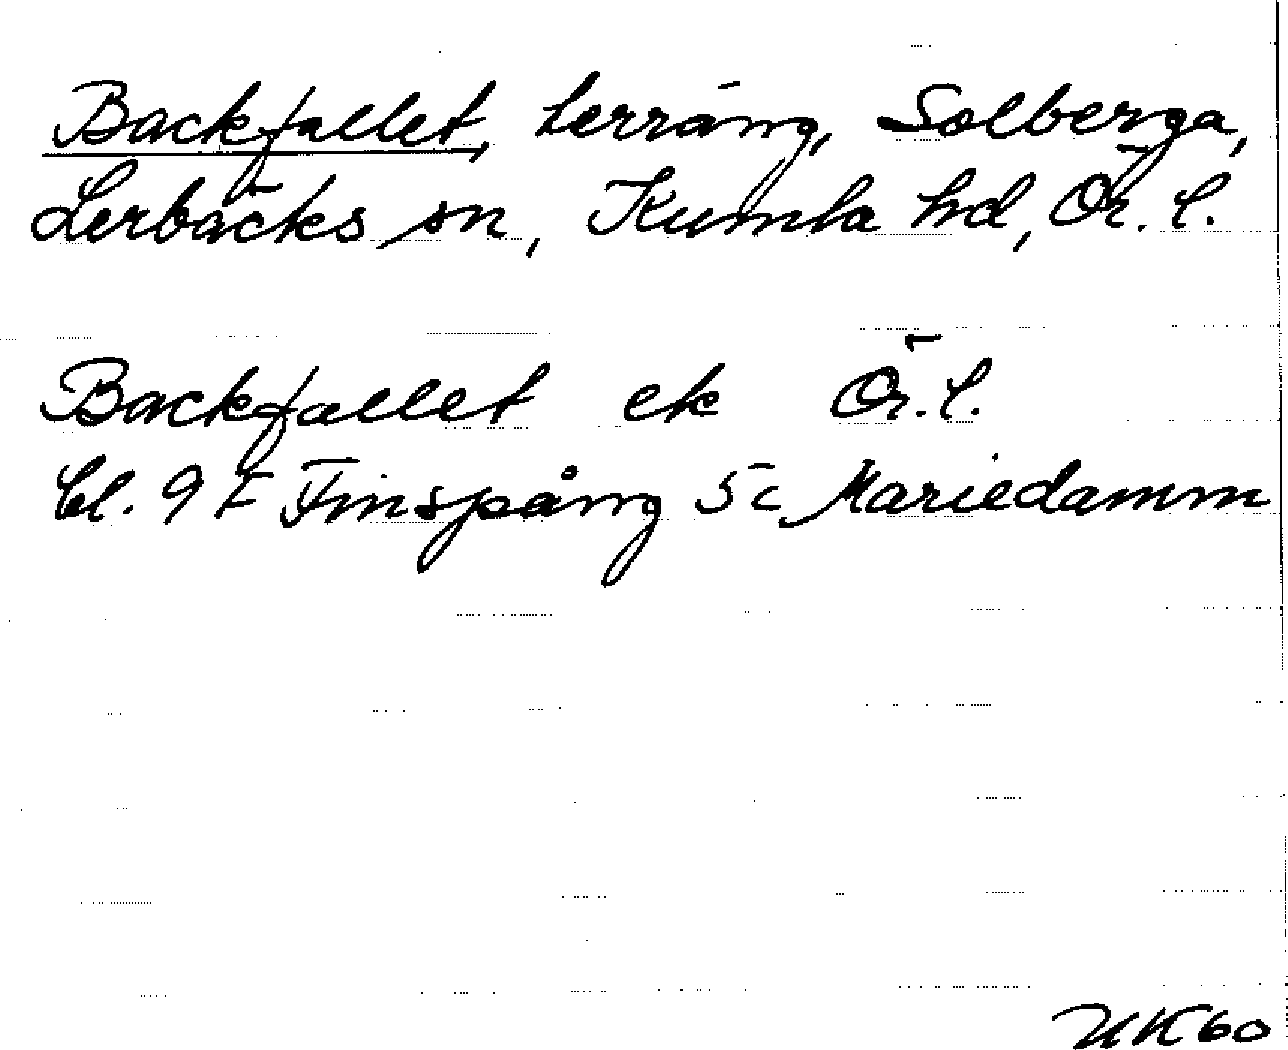 Backfallet, Lerräng, Solberga,
Lerbäcks sn, Kumla hd, Ör. l.
Backfallet ek Ör. l.
Bl. 9 F Finspång 5c Mariedamm
UK 60